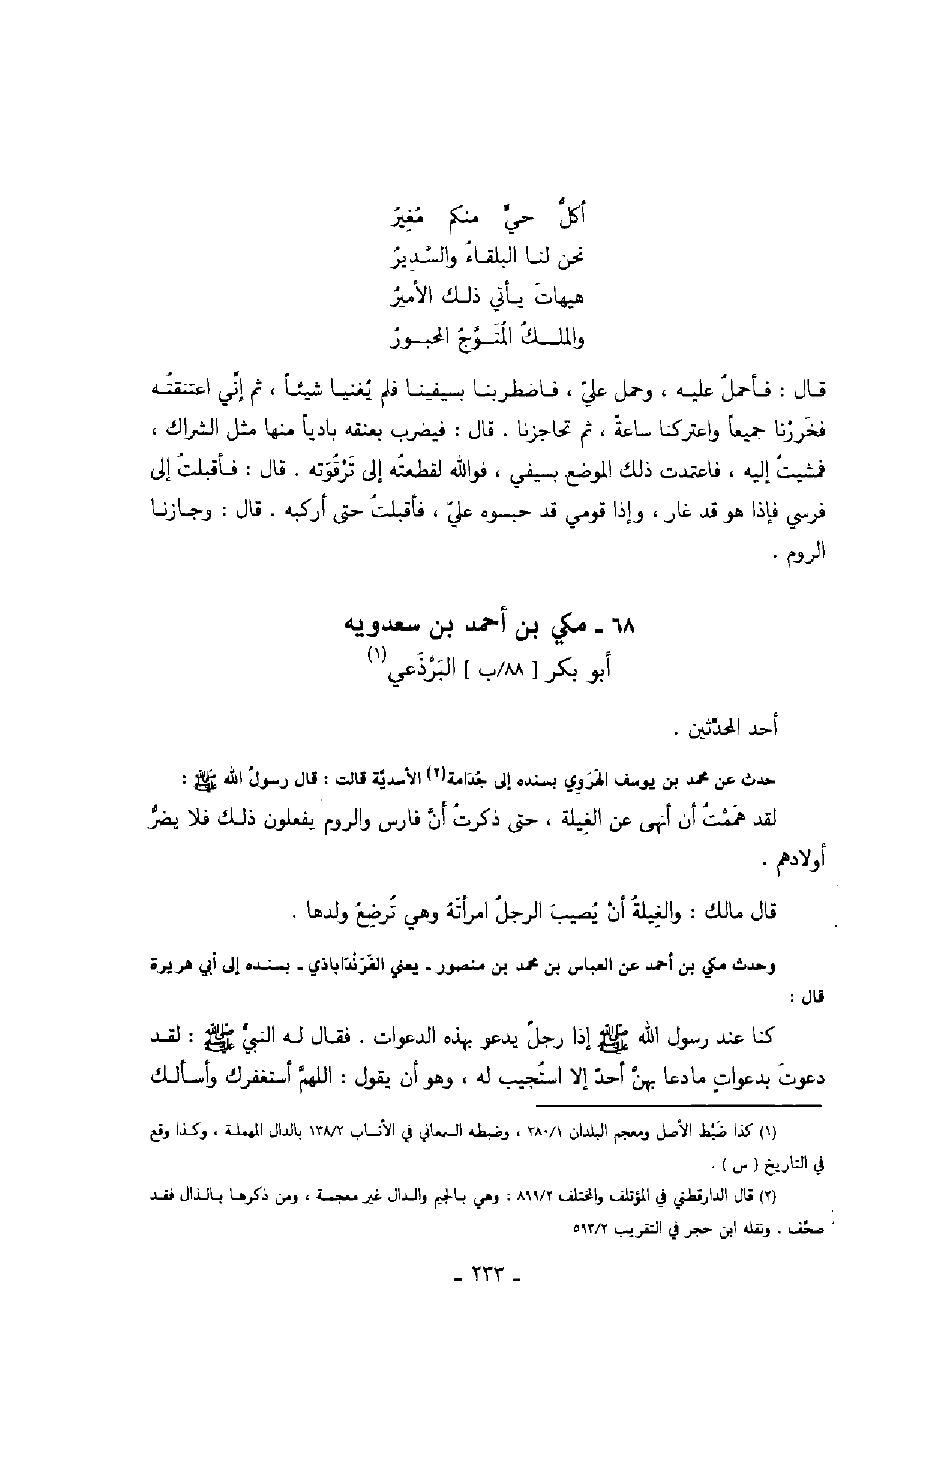 أكلُّ حيٍّ منكم مُغِيرُ
نحن لنا البلقاءُ والسَّديرُ
هيهاتَ يأتي ذلك الأميرُ
والملكُ المُتَوَّجُ المحبورُ
قال : فأحملُ عليه ، وحمل عليّ ، فاضطربنا بسيفينا فلم يُغنيا شيئاً ، ثم إنّي اعتنقتُه
فخَررْنا جميعاً واعتركنا ساعةً ، ثم تحاجزنا . قال : فيضرب بعنقه بادياً منها مثل الشراك ،
فمشيتُ إليه ، فاعتمدت ذلك الموضع بسيفي ، فوالله لقطعتُه إلى تَرْقُوَته . قال : فأقبلتُ إلى
فرسي فإذا هو قد غار ، وإذا قومي قد حبسوه عليّ ، فأقبلتُ حتى أركبه . قال : وجازنا
الروم .
٦٨ - مكي بن أحمد بن سعدويه
أبو بكر [ ٨٨/ب ] البَرْذَعي(١)
أحد المحدّثين .
حدث عن محمد بن يوسف الهَرَوي بسنده إلى جُدَامة(٢) الأسديّة قالت : قال رسولُ الله ﷺ :
لقد هَمَمْتُ أن أنهى عن الغِيلة ، حتى ذكرتُ أنَّ فارس والروم يفعلون ذلك فلا يضرُّ
أولادهم .
قال مالك : والغِيلةُ أنْ يُصيبَ الرجلُ امرأتَهُ وهي تُرضِعُ ولدها .
وحدث مكي بن أحمد عن العباس بن محمد بن منصور - يعني الفَرَنْدَاباذي - بسنده إلى أبي هريرة
قال :
كنا عند رسول الله ﷺ إذا رجلٌ يدعو بهذه الدعوات . فقال له النبيُّ ﷺ : لقد
دعوتَ بدعواتٍ مادعا بهنَّ أحدٌ إلا استُجيب له ، وهو أن يقول : اللهمَّ أستغفرك وأسألك
(١) كذا ضَبْط الأصل ومعجم البلدان ٣٨٠/١ ، وضبطه السمعاني في الأنساب ١٣٨/٢ بالدال المهملة ، وكذا وقع
في التاريخ ( س ) .
(٢) قال الدارقطني في المؤتلف والمختلف ٨٩٩/٢ : وهي بالجيم والدال غير معجمة ، ومن ذكرها بالذال فقد
صحّف . ونقله ابن حجر في التقريب ٥٩٣/٢
- ٢٣٣ -